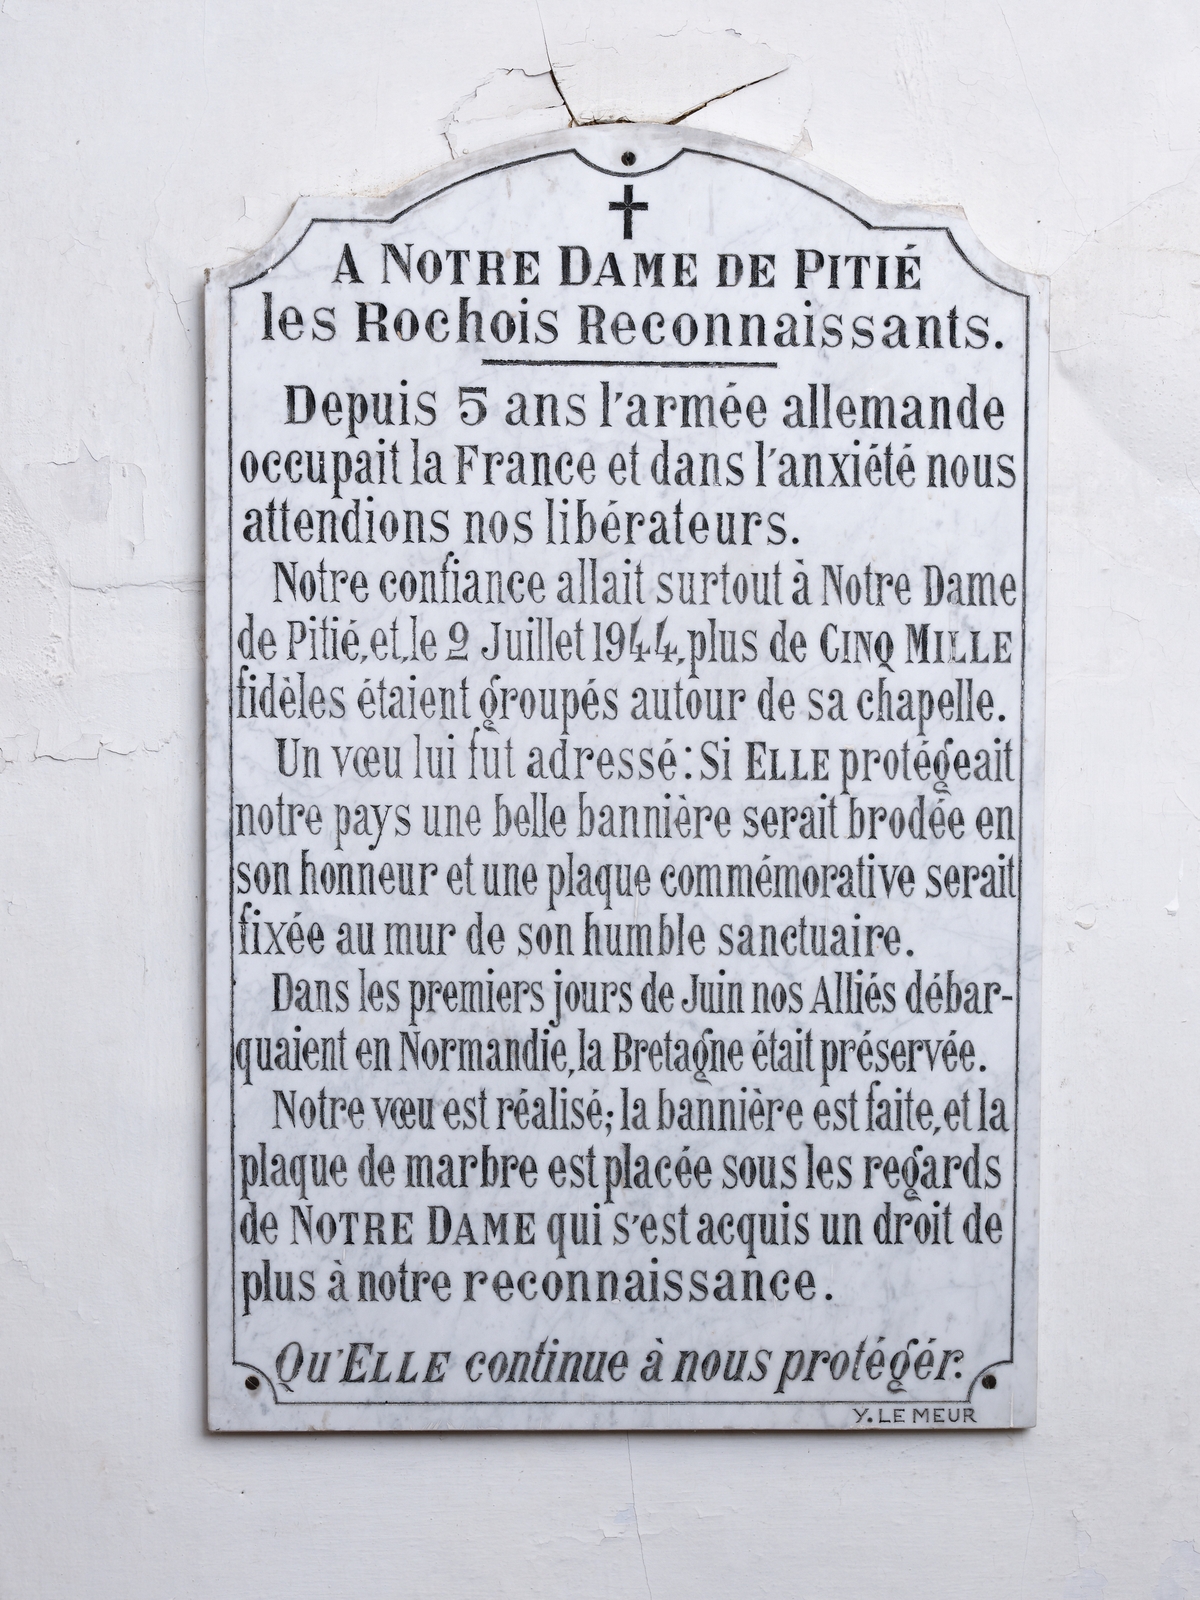 A NOTRE DAME DE PITIÉ
les Rochois Reconnaissants.
Depuis 5 ans l'armée allemande
occupait la France et dans l'anxiété nous
attendions nos libérateurs.
Notre confiance allait surtout à Notre Dame
de Pitié, et, le 2 Juillet 1944, plus de CINQ MILLE
fidèles étaient groupés autour de sa chapelle.
Un vœu lui fut adressé: Si ELLE protégeait
notre pays une belle bannière serait brodée en
son honneur et une plaque commémorative serait
fixée au mur de son humble sanctuaire.
Dans les premiers jours de Juin nos Alliés débar-
quaient en Normandie, la Bretagne était préservée.
Notre vœu est réalisé; la bannière est faite, et la
plaque de marbre est placée sous les regards
de NOTRE DAME qui s'est acquis un droit de
plus à notre reconnaissance.
Qu'ELLE continue à nous protégér.
Y. LE MEUR